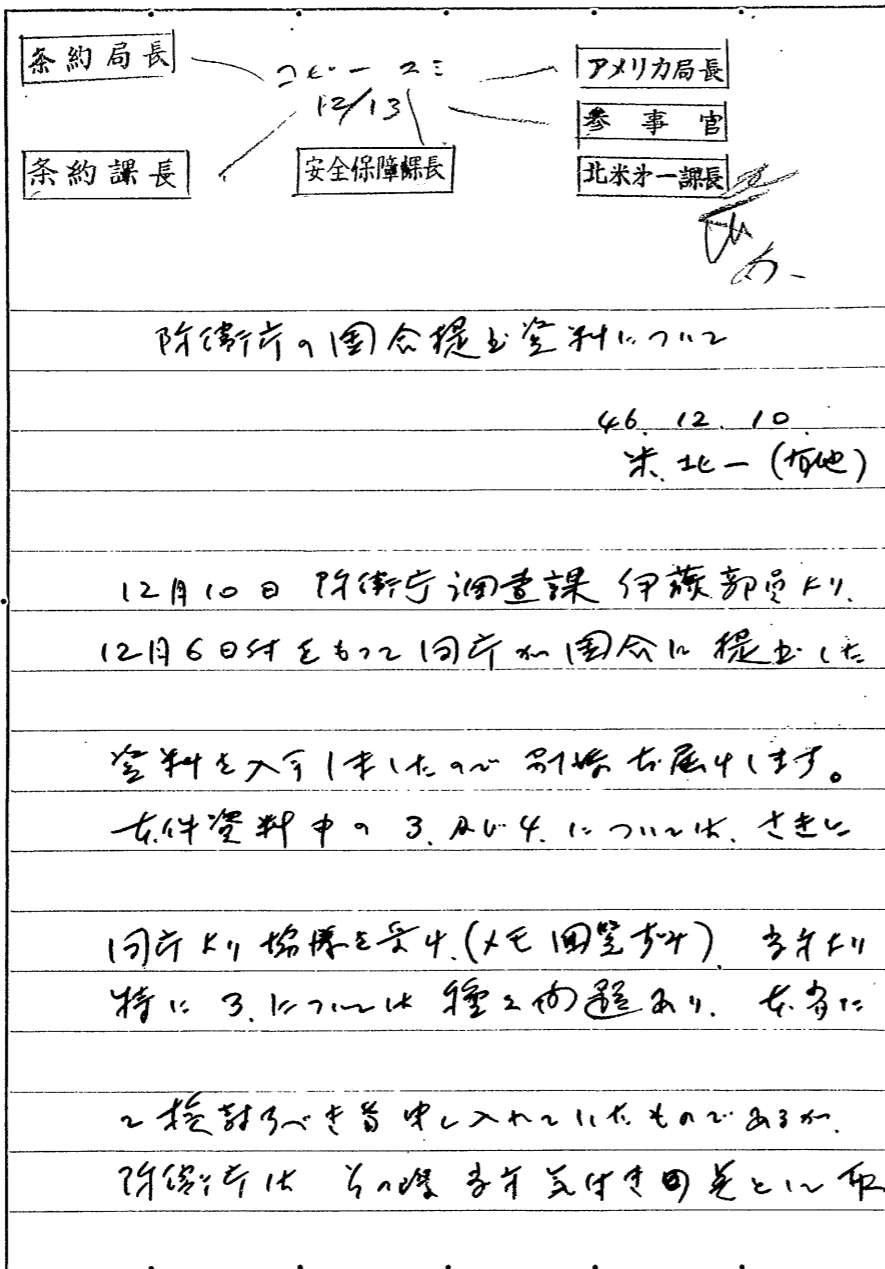 条約局長
コピー スミ
12/13
アメリカ局長
参事官
条約課長
安全保障課長
北米第一課長
防衛庁の国会提出資料について
46. 12. 10.
米. 北一 ()
12月10日 防衛庁調査課 伊藤部員より、
12月6日付をもって同庁が国会に提出した
資料を入手しましたので 別添お届けします。
本件資料中の 3. 及び 4. については、さきに
同庁より協議を受け、(メモ回覧ずみ) 当方より
特に 3. については 種々問題あり、本省に
て検討すべき旨申し入れていたものであるが、
防衛庁は その際 当方気付きの点として取